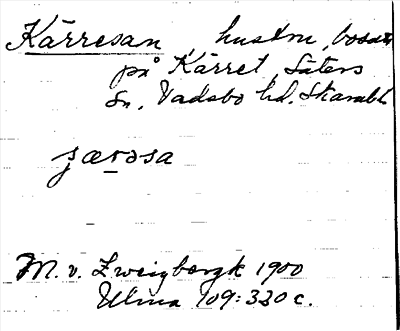 Kärresan, hustru, bosatt
på Kärret, Säters
Sn, Vadsbo hd. Skarabl.
særəsa
M. v. Zweigbergk 1900
Ulma 109:330 c.